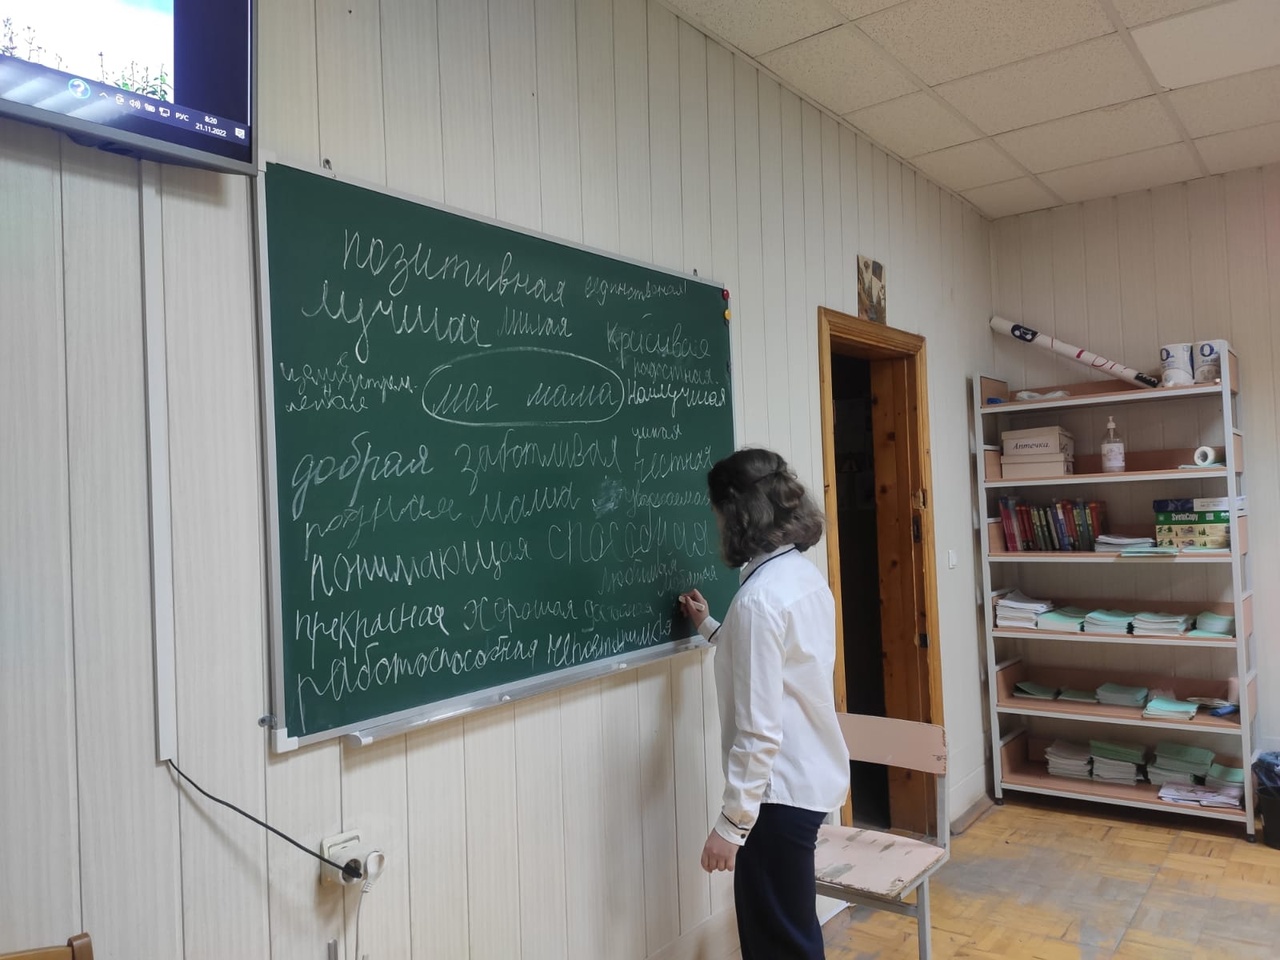 РУС
8:20
21.11.2022
позитивная единственая!
лучшая милая
красивая
радостная
целеустрем.
моя мама
наилучшая
умная
добрая заботливая
честная
родная мама уважаемая
понимающая
любимая
прекрасная хорошая
работоспособная неповторимая
Аптечка
SvetoCopy